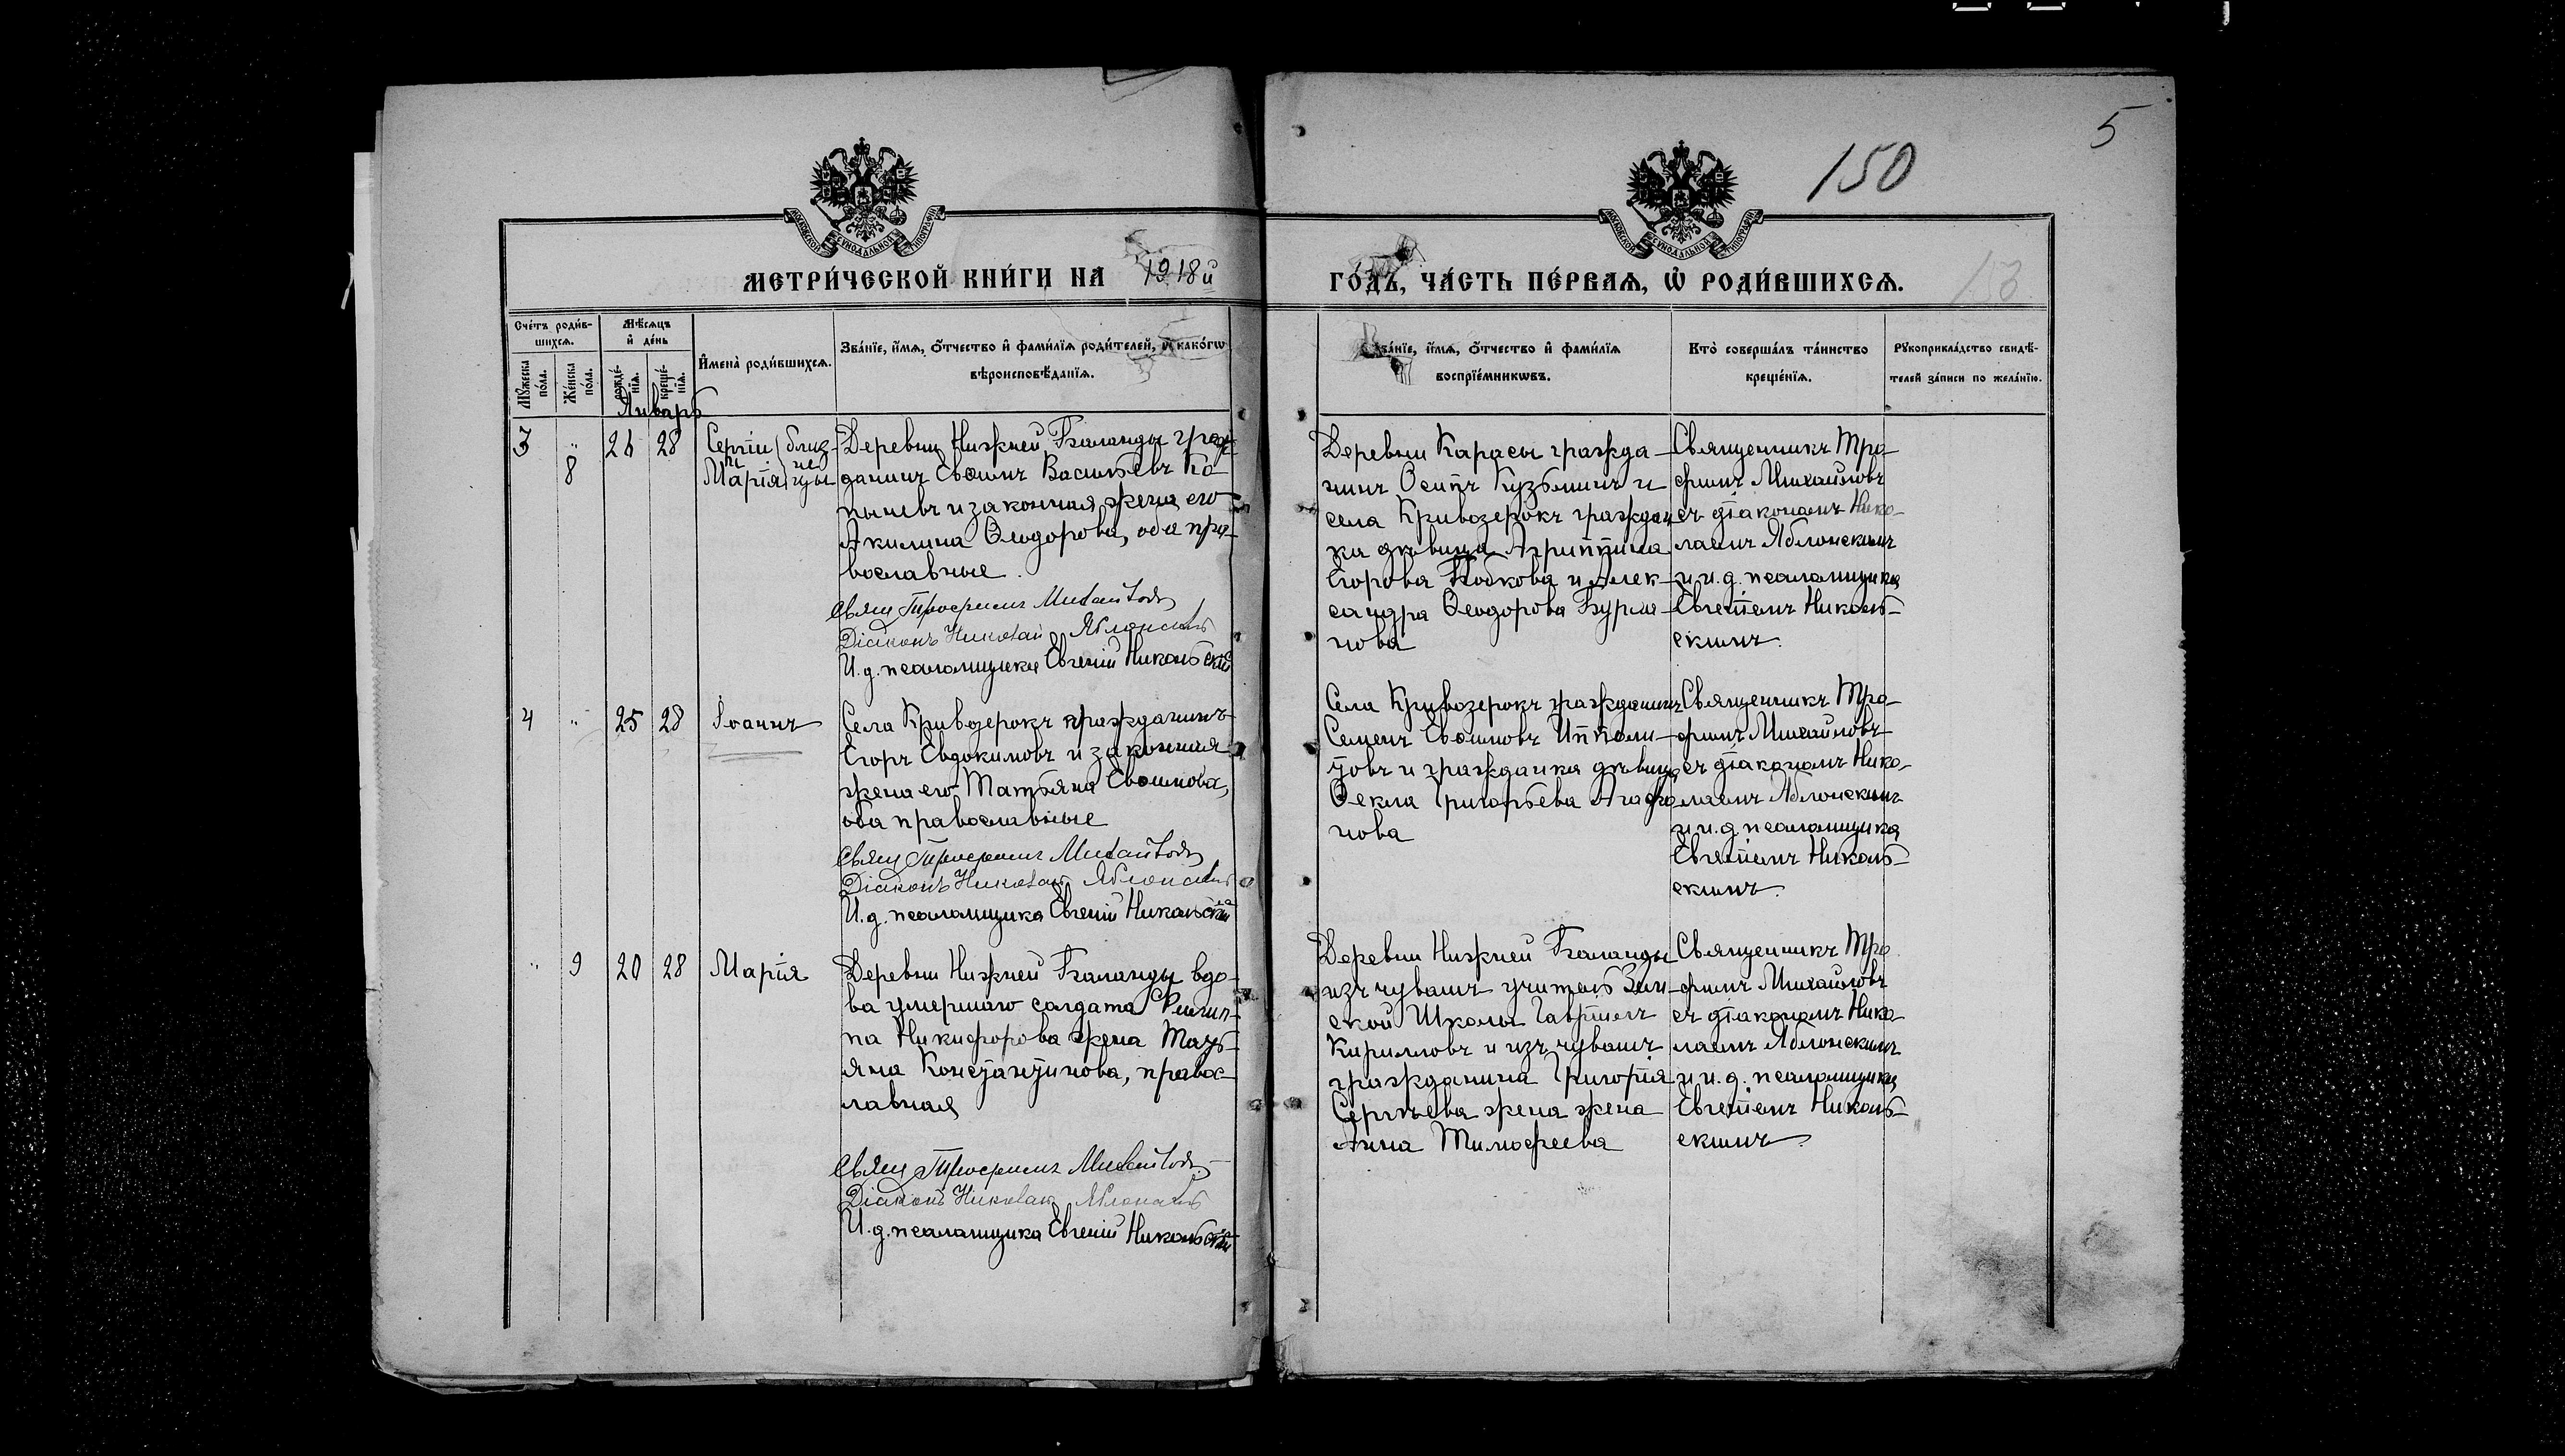 5
150
МОСКОВСКОЙ СѴНОДАЛЬНОЙ ТИПОГРАФІИ
МОСКОВСКОЙ СѴНОДАЛЬНОЙ ТИПОГРАФІИ
МЕТРИ́ЧЕСКОЙ КНИ́ГИ НА 1918й
ГО́ДЪ, ЧА́СТЬ ПЕ́РВАѦ, Ѡ҆ РОДИ́ВШИХСѦ.
153
Сче́тъ роди́в-
шихсѧ.
Мꙋ́жеска по́ла.
Же́нска по́ла.
Мѣ́сѧцъ
и҆ де́нь
рожде́-
нїѧ.
креще́-
нїѧ.
И҆мена̀ роди́вшихсѧ.
Зва́нїе, и҆́мѧ, ѻ҆́тчество и҆ фами́лїѧ роди́телей, и҆ како́гѡ
вѣроисповѣ́данїѧ.
Зва́нїе, и҆́мѧ, ѻ҆́тчество и҆ фами́лїѧ
воспрїе́мникѡвъ.
Кто̀ соверша́лъ та́инство
креще́нїѧ.
Рꙋкоприкла́дство свидѣ́-
телей за́писи по жела́нїю.
Январь
3 " 26 28
8
Сергій близ-
и не
Марія цы
Деревни Нижней Баланды граж-
данинъ Евѳимъ Васильевъ Ко-
пычевъ и законная жена его
Акилина Ѳеодорова, оба пра-
вославные.
Свящ Трофимъ Михайловъ
Діаконъ Николай Яблонскій
И.д. псаломщика Евгеній Никольскій
Деревни Карасы гражда-
нинъ Осипъ Кузьминъ и
села Кривозерокъ граждан-
ка дѣвица Агриппина
Егорова и Алек-
сандра Ѳеодорова Бурла-
кова
Священникъ Тро-
фимъ Михайловъ
съ діакономъ Нико-
лаемъ Яблонскимъ
и и.д. псаломщика
Евгеніемъ Николь-
скимъ.
4 " 25 28 Іоаннъ
Села Кривозерокъ гражданинъ
Егоръ Евдокимовъ и законная
жена его Татьяна Евѳимова,
оба православные
Свящ Трофимъ Михайловъ
Діаконъ Николай Яблонскій
И.д. псаломщика Евгеній Никольскій
Села Кривозерокъ гражданинъ
Семенъ Евѳимовъ Ипполи-
товъ и гражданка дѣвица
Ѳекла Григорьева Агафо-
нова
Священникъ Тро-
фимъ Михайловъ
съ діакономъ Нико-
лаемъ Яблонскимъ
и и.д псаломщика
Евгеніемъ Николь-
скимъ.
" 9 20 28 Марія
Деревни Нижней Баланды вдо-
ва умершаго солдата Филип-
па Никифорова жена Тать-
яна Константинова, правос-
лавная
Свящ Трофимъ Михайловъ
Діаконъ Николай Яблонскій
И.д. псаломщика Евгеній Никольскій
Деревни Нижней Баланды
изъ чувашъ учитель Зем-
ской Школы Гавріилъ
Кирилловъ и изъ чувашъ
гражданина Григорія
Сергѣева жена жена
Анна Тимофеева
Священникъ Тро
фимъ Михайловъ
съ діакономъ Нико-
лаемъ Яблонскимъ
и и.д. псаломщика
Евгеніемъ Николь-
скимъ